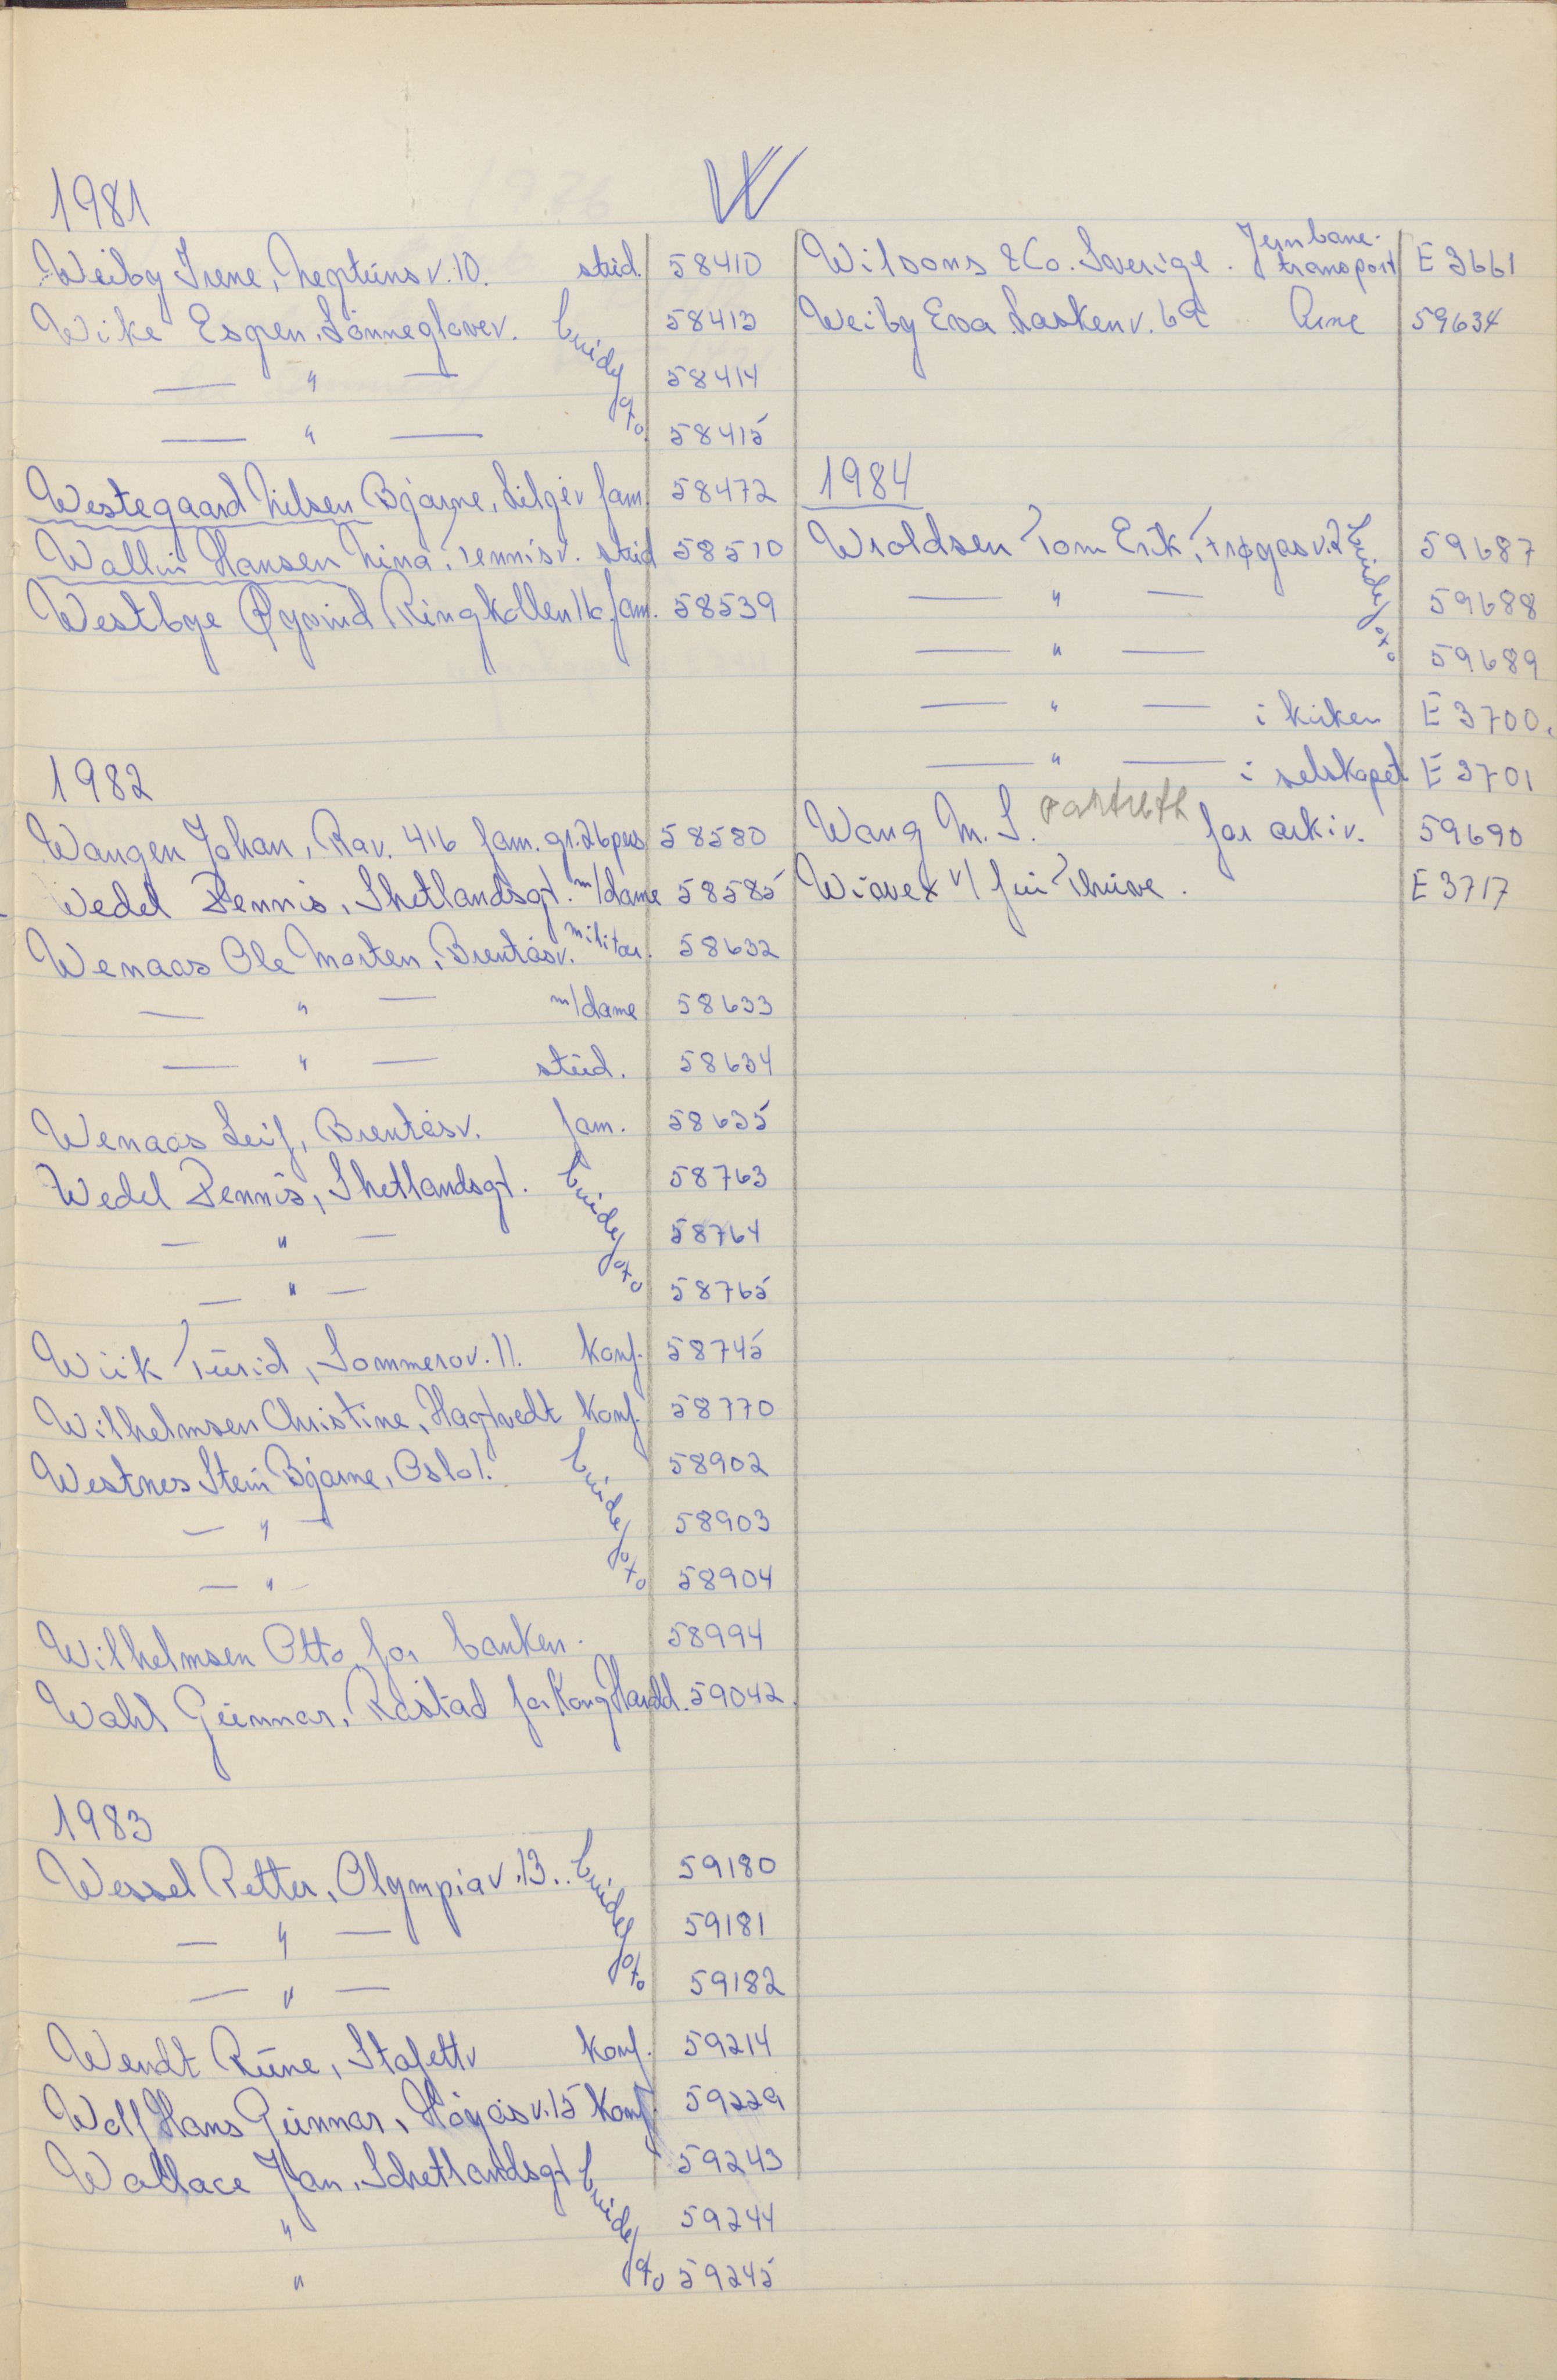 W
1981
Weiby Irene, Neptuns v. 10. stud. 58410
Wike Espen, Lønnegløvev. brudefoto 58413
— " — 58414
— " — 58415
Westegaard Nilsen Bjarne, Liljev fam. 58472
Wallin Hansen Nina, Tennisv. stud 58510
Westbye Øyvind Ringkollen 16. fam. 58539
1982
Wangen Johan, Rav. 416 fam. gr. 26 pers 58580
Wedel Dennis, Shetlandsgt. m/dame 58585
Wenaas Ole Morten, Brentåsv. militær. 58632
— " — m/dame 58633
— " — stud. 58634
Wenaas Leif, Brentåsv. fam. 58635
Wedel Dennis, Shetlandsgt. brudefoto 58763
— " — 58764
— " — 58765
Wiik Turid, Sommerov. 11. konf. 58745
Wilhelmsen Christine, Hagtvedt konf. 58770
Westnes Stein Bjarne, Oslo 1. brudefoto 58902
— " — 58903
— " — 58904
Wilhelmsen Otto for banken. 58994
Wahl Gunnar, Råstad for Kong Harald. 59042
1983
Wessel Petter, Olympiav. 13.. brudefoto 59180
— " — 59181
— " — 59182
Wendt Rune, Stafettv konf. 59214
Wolf Hans Gunnar, Høyåsv. 15 konf. 59229
Wallace Jan, Schetlandsgt brudefoto 59243
" 59244
" 59245
Wilsons & Co. Sverige. Jernbane-transport E 3661
Weiby Eva Laskenv. 69 59634
1984
Wroldsen Tom Erik, Frøyasv. 2 brudefoto 59687
— " — 59688
— " — 59689
— " — i kirken E 3700.
— " — i selskapet E 3701
Wang M. S. portreth for arkiv. 59690
Wiavex v/ fru Thune. E 3717